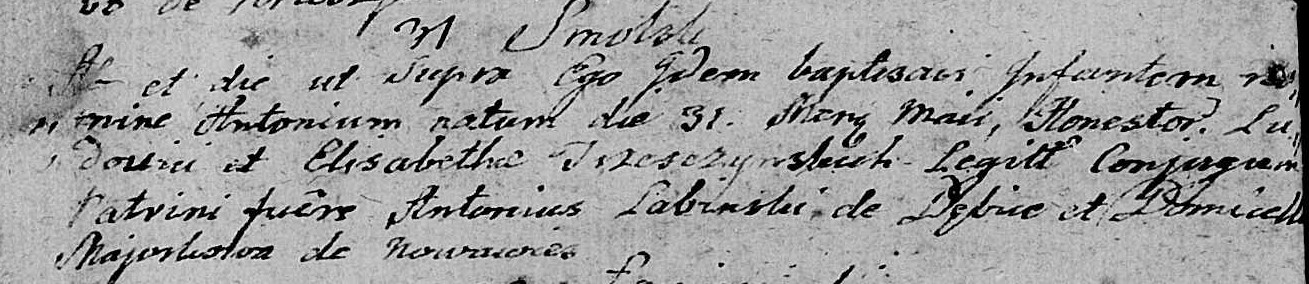 31 Smolski
Ao et die ut Supra Ego Idem baptisavi Infantem no,,
mine Antonium natum die 31. Mens Maii, Honestor. Lu,,
dovici et Elisabethae Trzeszczynskich Legitt Conjugum
Patrini fuêre Antonius Labinski de Dębice et Domicella
Majorkowa de Nowawies